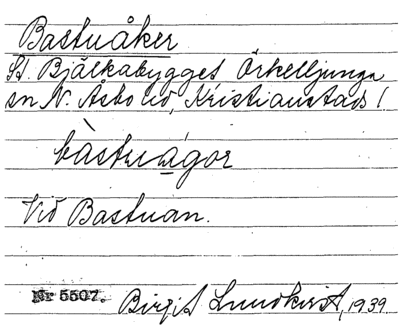 Bastuåker
St. Bjälkabygget Örkelljunga
sn N. Åsbo hd, Kristianstads l
bàstuágor
Vid Bastuan.
Nr 5507. Birgit Lundkvist, 1939.